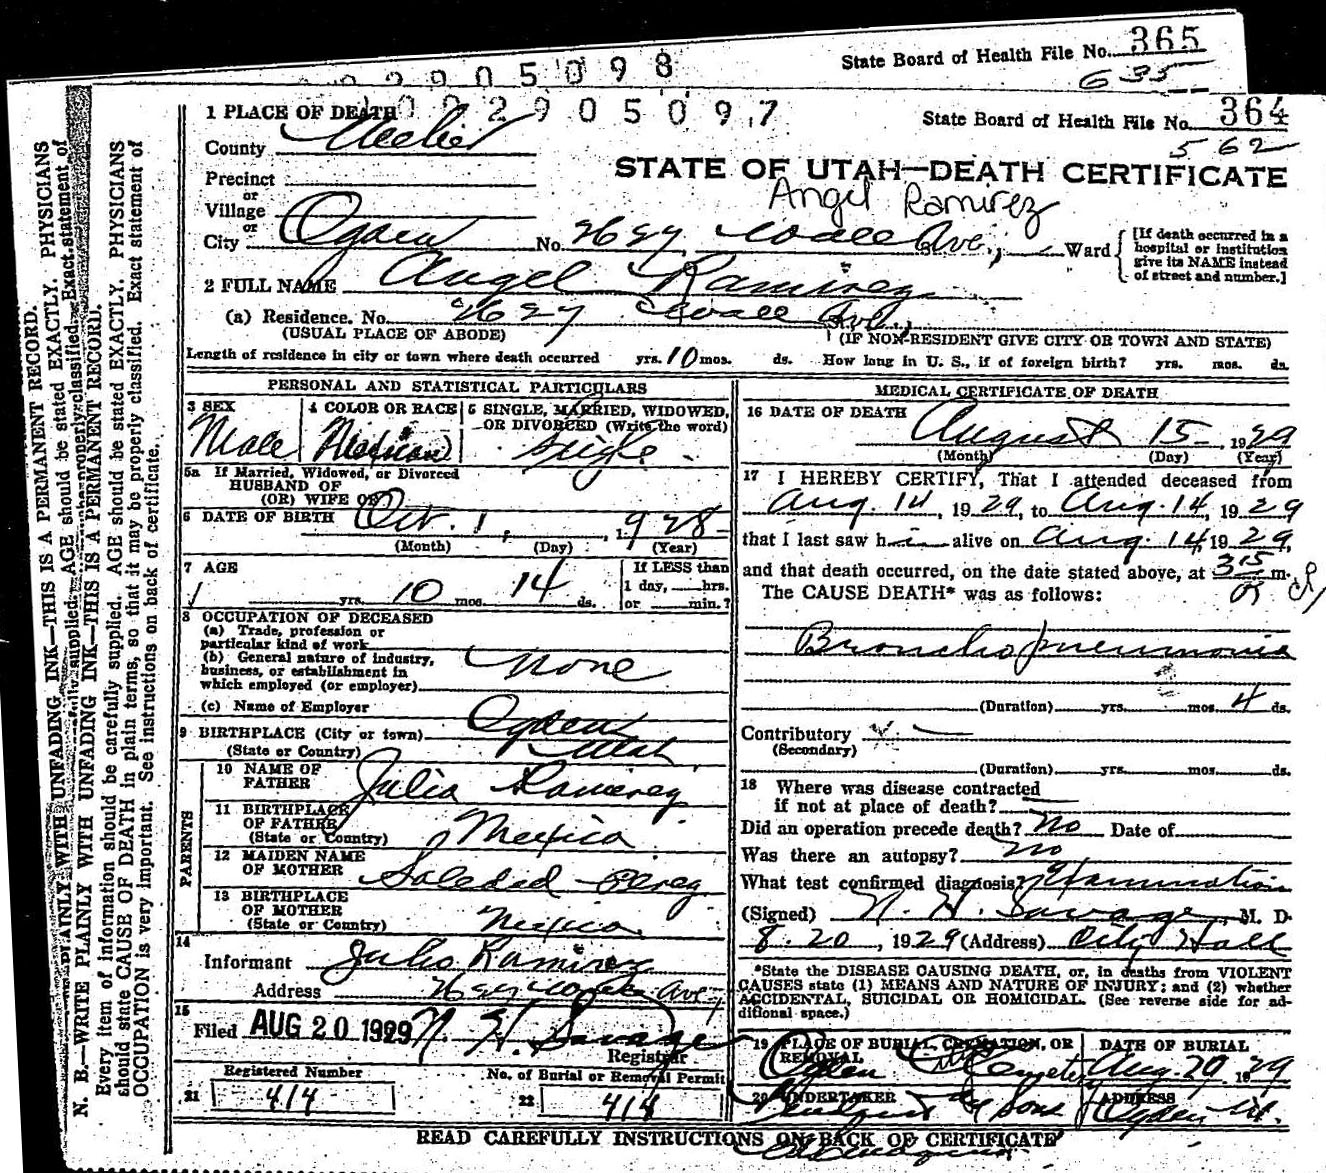 02905098
State Board of Health File No. 365
635
1 PLACE OF DEATH
022905097
State Board of Health File No. 364
562
County Weber
STATE OF UTAH—DEATH CERTIFICATE
Precinct
or
Village
or
City Ogden
Angel Ramirez
No. Ave., Ward
[If death occurred in a hospital or institution give its NAME instead of street and number.]
2 FULL NAME Angel Ramirez
(a) Residence. No. Ave.,
(USUAL PLACE OF ABODE)
(IF NON-RESIDENT GIVE CITY OR TOWN AND STATE)
Length of residence in city or town where death occurred yrs. 10 mos. ds. How long in U. S., if of foreign birth? yrs. mos. ds.
PERSONAL AND STATISTICAL PARTICULARS
3 SEX
Male
4 COLOR OR RACE
Mexican
5 SINGLE, MARRIED, WIDOWED, OR DIVORCED (Write the word)
Single
5a If Married, Widowed, or Divorced
HUSBAND OF
(OR) WIFE OF
6 DATE OF BIRTH Oct. 1, 1928
(Month) (Day) (Year)
7 AGE
yrs. 10 mos. 14 ds.
If LESS than
1 day, hrs.
or min.?
8 OCCUPATION OF DECEASED
(a) Trade, profession or
particular kind of work
(b) General nature of industry,
business, or establishment in
which employed (or employer)
none
(c) Name of Employer
9 BIRTHPLACE (City or town) Ogden
(State or Country) Utah
PARENTS
10 NAME OF
FATHER Julio Ramirez
11 BIRTHPLACE
OF FATHER
(State or Country) Mexico
12 MAIDEN NAME
OF MOTHER Soledad Perez
13 BIRTHPLACE
OF MOTHER
(State or Country) Mexico
14
Informant Julio Ramirez
Address Ave.,
15
Filed AUG 20 1929 N. H. Savage
Registrar
Registered Number
21 414
No. of Burial or Removal Permit
22 414
MEDICAL CERTIFICATE OF DEATH
16 DATE OF DEATH
August 15 1929
(Month) (Day) (Year)
17 I HEREBY CERTIFY, That I attended deceased from
Aug. 14, 1929, to Aug. 14, 1929
that I last saw h i alive on Aug. 14, 1929,
and that death occurred, on the date stated above, at 3 15 m.
The CAUSE DEATH* was as follows:
Broncho pneumonia
(Duration) yrs. mos. 4 ds.
Contributory
(Secondary)
(Duration) yrs. mos. ds.
18 Where was disease contracted
if not at place of death?
Did an operation precede death? No Date of
Was there an autopsy? no
What test confirmed diagnosis? Examination
(Signed) N. H. Savage, M. D.
8.20, 1929 (Address) City Hall
*State the DISEASE CAUSING DEATH, or, in deaths from VIOLENT
CAUSES state (1) MEANS AND NATURE OF INJURY; and (2) whether
ACCIDENTAL, SUICIDAL OR HOMICIDAL. (See reverse side for ad-
ditional space.)
19 PLACE OF BURIAL, CREMATION, OR REMOVAL
Ogden City Cemetery
DATE OF BURIAL
Aug. 20 1929
20 UNDERTAKER
& Sons
ADDRESS
Ogden Ut.
READ CAREFULLY INSTRUCTIONS ON BACK OF CERTIFICATE
N. B.—WRITE PLAINLY WITH UNFADING INK—THIS IS A PERMANENT RECORD.
Every item of information should be carefully supplied. AGE should be stated EXACTLY. PHYSICIANS
should state CAUSE OF DEATH in plain terms, so that it may be properly classified. Exact statement of
OCCUPATION is very important. See instructions on back of certificate.